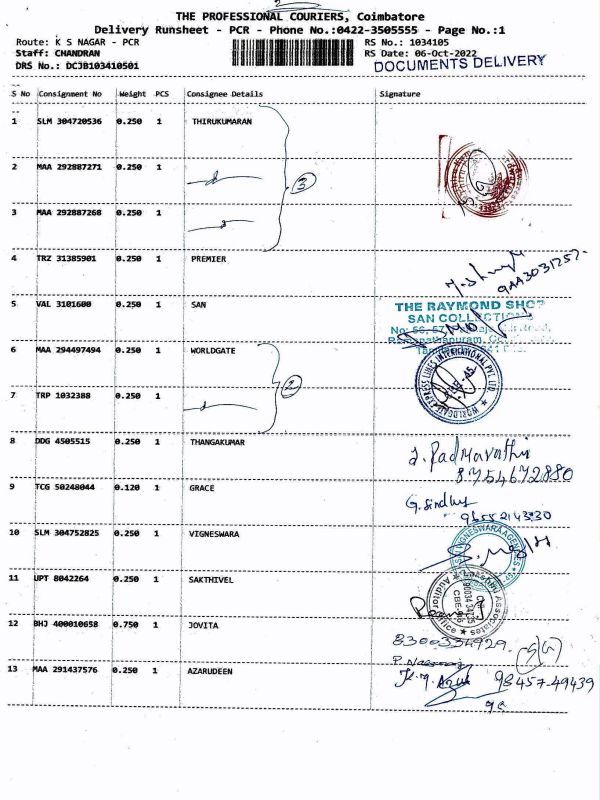 THE PROFESSIONAL COURIERS, Coimbatore
Delivery Runsheet - PCR - Phone No.:0422-3505555 - Page No.:1
Route: K S NAGAR - PCR RS No.: 1034105
Staff: CHANDRAN RS Date: 06-Oct-2022
DRS No.: DCJB103410501 DOCUMENTS DELIVERY
S No Consignment No Weight PCS Consignee Details Signature
1 SLM 304720536 0.250 1 THIRUKUMARAN
2 MAA 292887271 0.250 1
3
3 MAA 292887268 0.250 1
4 TRZ 31385901 0.250 1 PREMIER
5 VAL 3101600 0.250 1 SAN
THE RAYMOND SHOP
SAN COLLECTIONS
6 MAA 294497494 0.250 1 WORLDGATE
WORLDGATE EXPRESS LINES INTERNATIONAL PVT. LTD.
2
7 TRP 1032388 0.250 1
8 DDG 4505515 0.250 1 THANGAKUMAR
J. Padmavathi
8754672880
9 TCG 50248044 0.120 1 GRACE
G. Sindhu
10 SLM 304752825 0.250 1 VIGNESWARA
11 UPT 8042264 0.250 1 SAKTHIVEL
12 BHJ 400010658 0.750 1 JOVITA
8300334929
13 MAA 291437576 0.250 1 AZARUDEEN
98457-49439